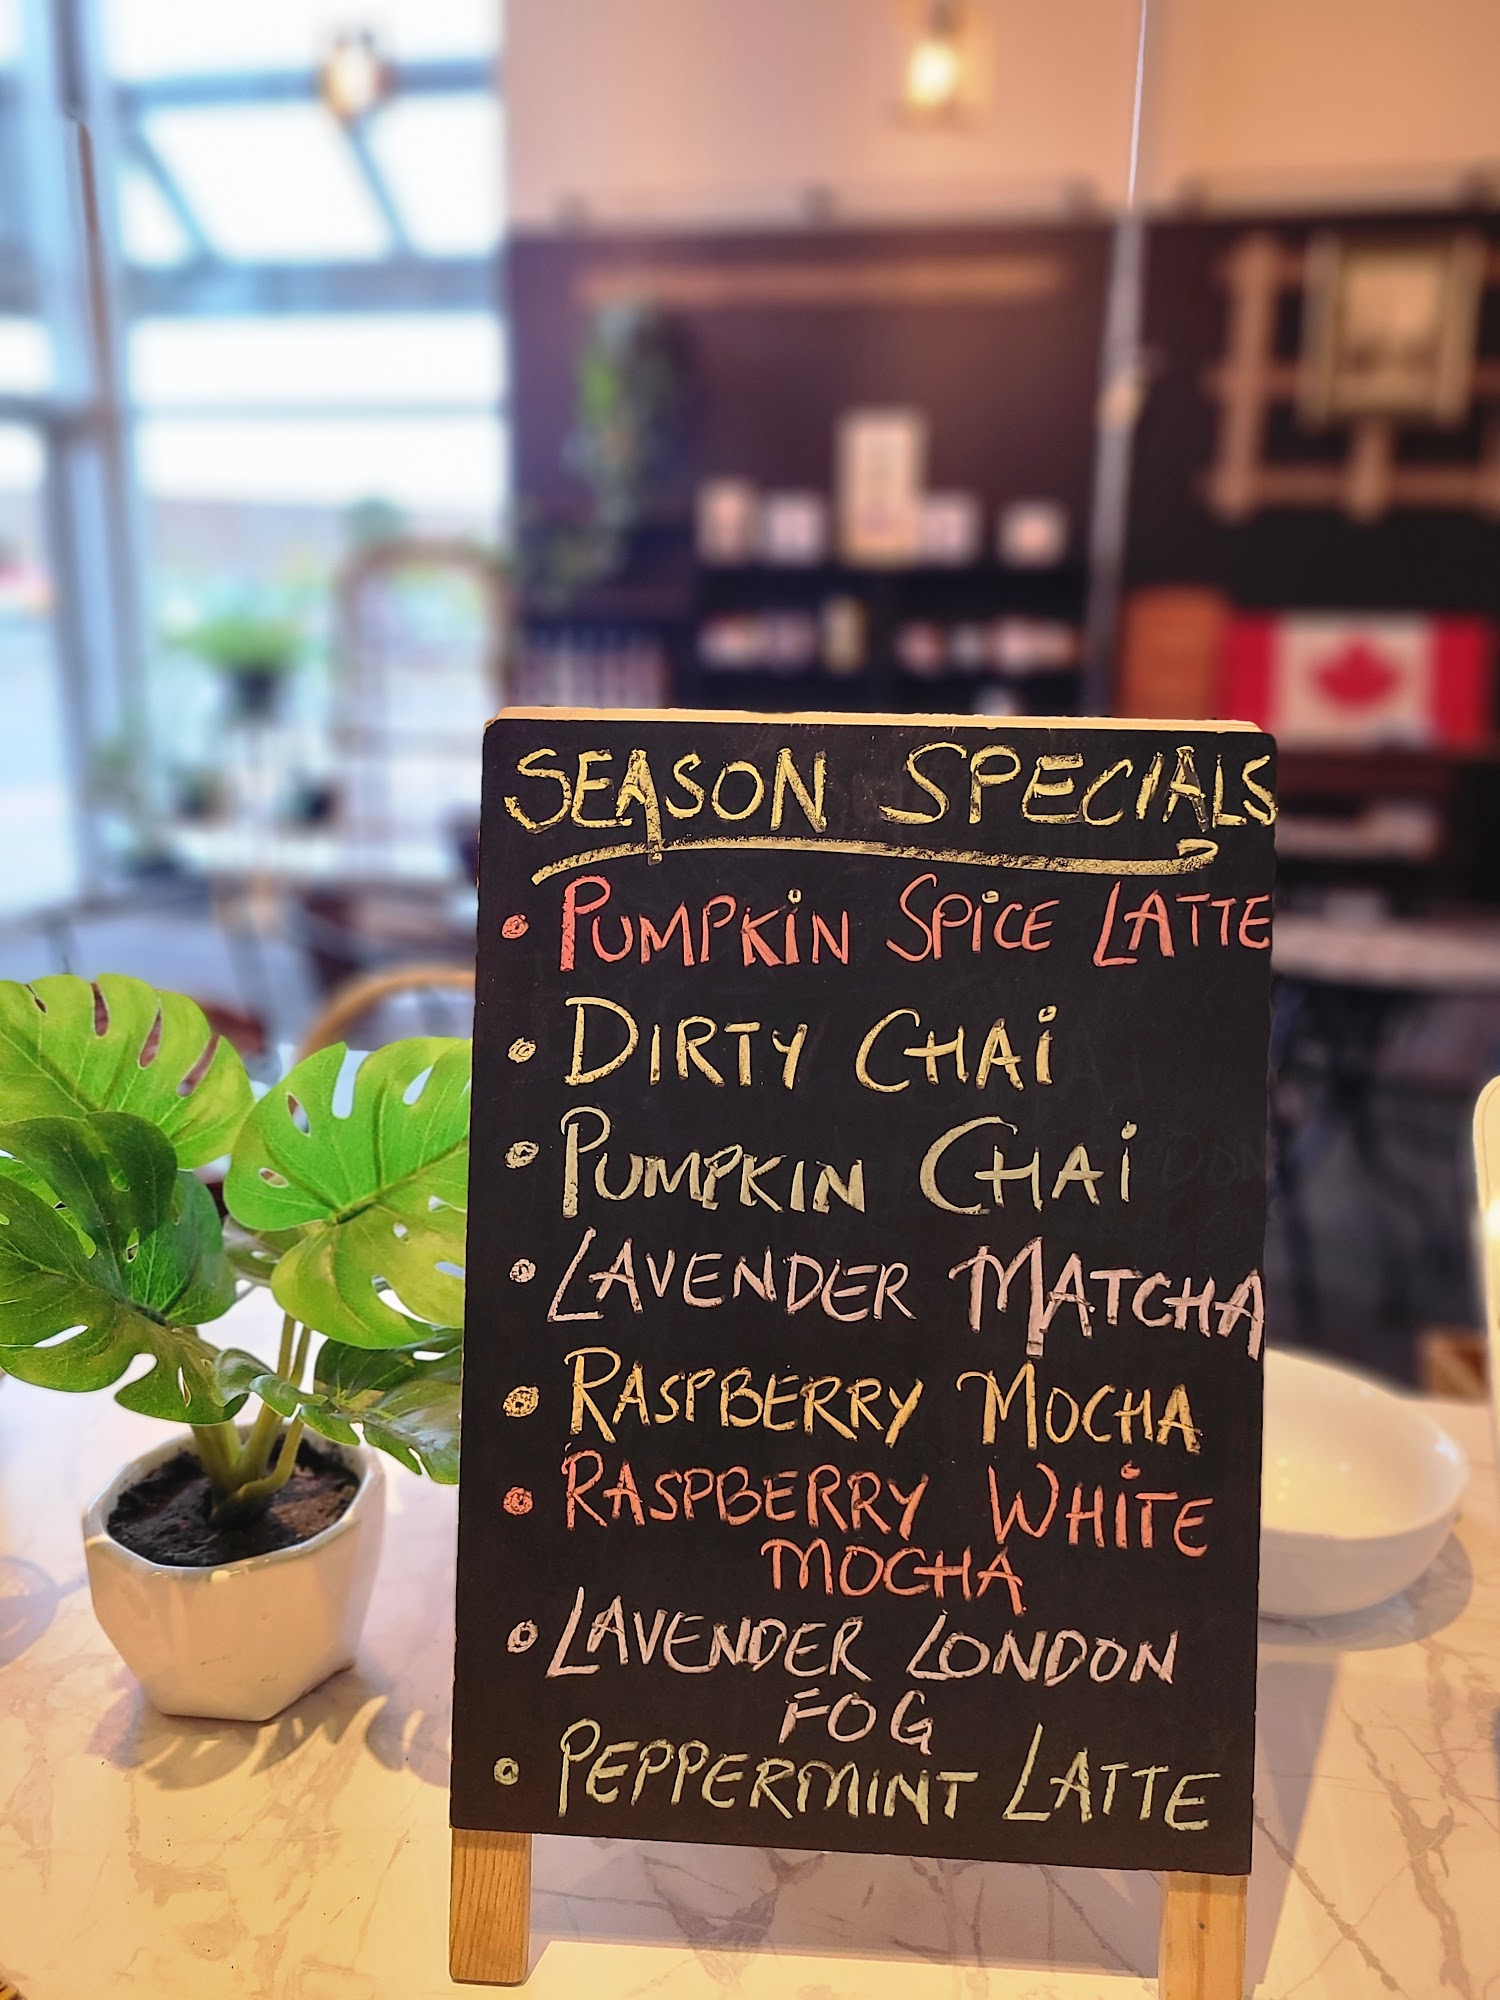 SEASON SPECIALS
• PUMPKIN SPICE LATTE
• DIRTY CHAI
• PUMPKIN CHAI
• LAVENDER MATCHA
• RASPBERRY MOCHA
• RASPBERRY WHITE
MOCHA
• LAVENDER LONDON
FOG
• PEPPERMINT LATTE